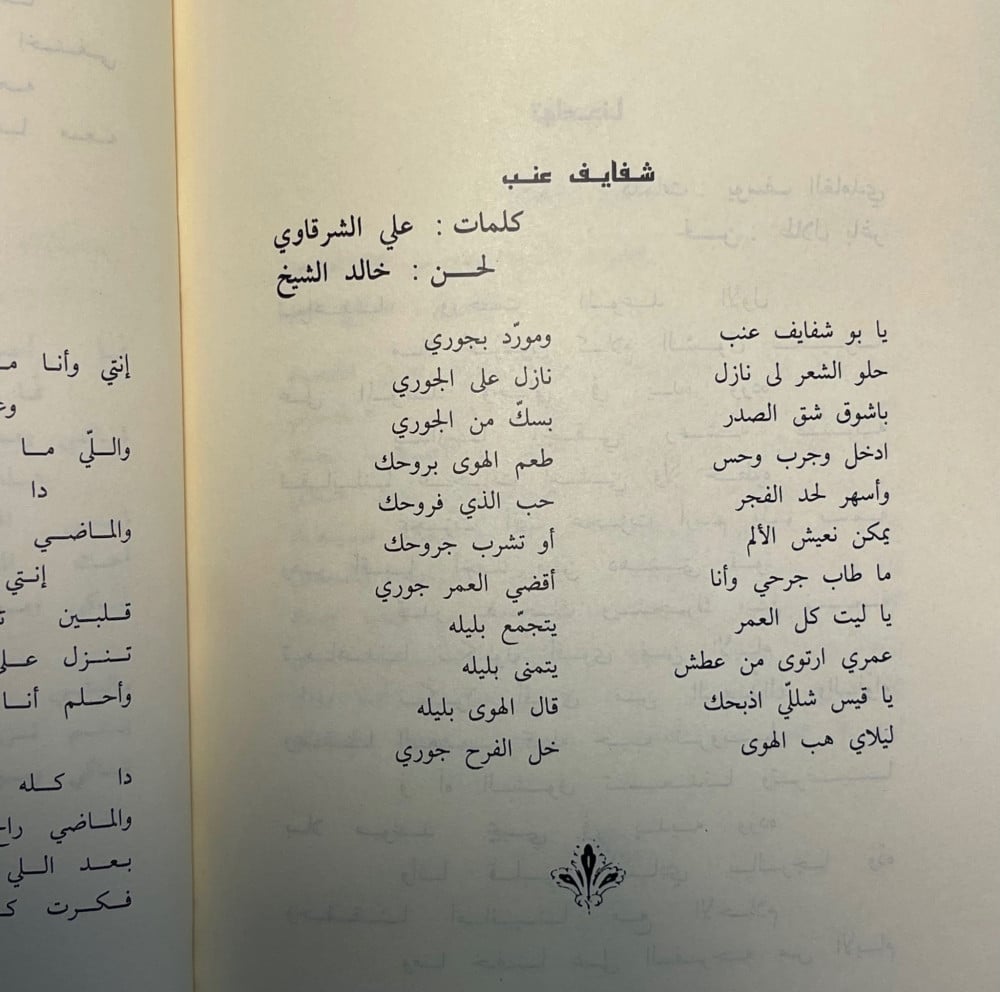 شفايف عنب
كلمات : علي الشرقاوي
لحن : خالد الشيخ
يا بو شفايف عنب ومورّد بجوري
حلو الشعر لى نازل نازل على الجوري
باشوق شق الصدر بسكّ من الجوري
ادخل وجرب وحس طعم الهوى بروحك
وأسهر لحد الفجر حب الذي فروحك
يمكن نعيش الألم أو تشرب جروحك
ما طاب جرحي وأنا أقضي العمر جوري
يا ليت كل العمر يتجمّع بليله
عمري ارتوى من عطش يتمنى بليله
يا قيس شللّي اذبحك قال الهوى بليله
ليلاي هب الهوى خل الفرح جوري
إنتي وأنا
واللّي ما
دا
والماضي
إنتي
قلبين
تنزل
وأحلم أنا
دا كله
والماضي
بعد اللي
فكرت